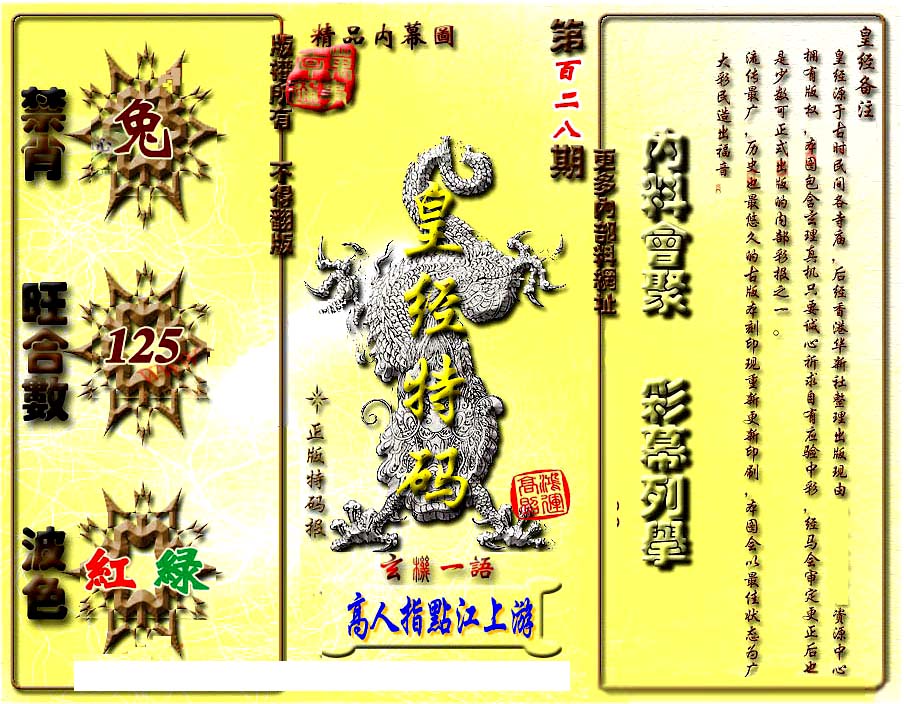 皇经备注
皇经源于古时民间各寺庙,后经香港华新社整理出版现由 資源中心
拥有版权,本图包含玄理真机只要诚心祈求自有应验中彩,经马会审定更正后也
是少数可正式出版的内部彩报之一。
流传最广,历史也最悠久的古版本刻印现重新更新印刷,本图会以最佳状态为广
大彩民造出福音
内料會聚 彩幕列舉
更多内部料網址
第百二八期
精品内幕圖
皇经特码
正版特码报
鴻運高照
玄機一語
高人指點江上游
版權所有 不得翻版
禁肖
兔
旺合數
125
波色
紅 綠